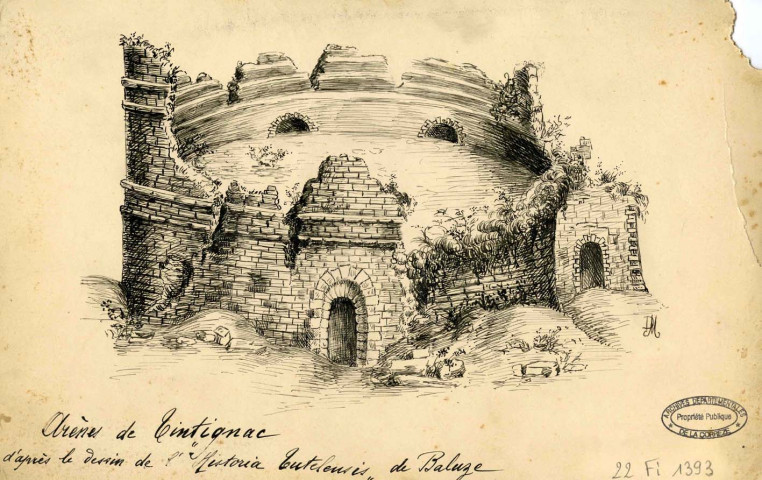 Arènes de Tintignac
d'après le dessin de l'"Historia Tutelensis" de Baluze
ARCHIVES DÉPARTEMENTALES
Propriété Publique
DE LA CORRÈZE
22 Fi 1393